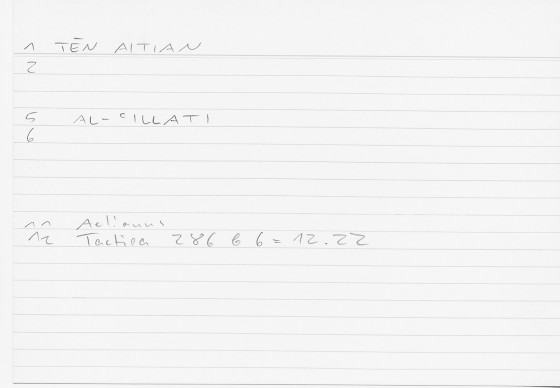 1 TĒN AITIAN
2
5 AL-ʿILLATI
6
11 Aelianus
12 Tactica 286 b 6 = 12.22